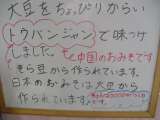 大豆をちょっぴりからい
トウバンジャンで味つけ
しました。中国のおみそです
そら豆から作られています。
日本のおみそは大豆から
作られています